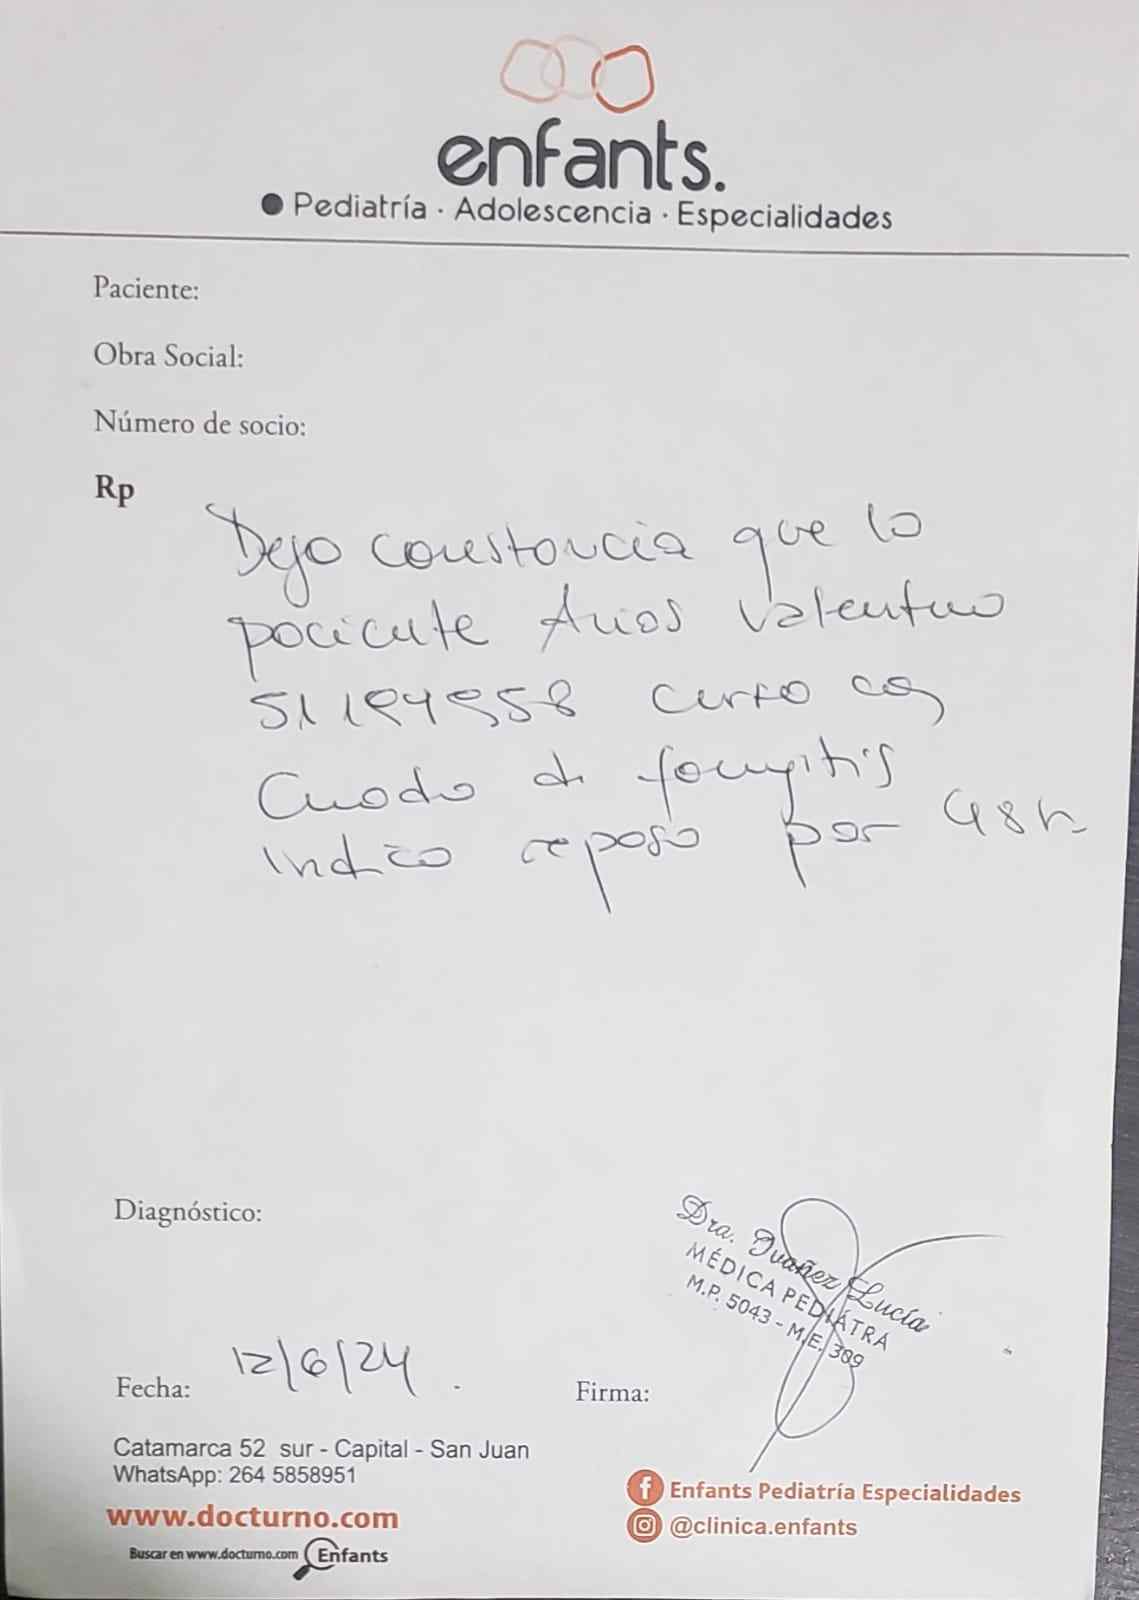 enfants.
● Pediatría · Adolescencia · Especialidades
Paciente:
Obra Social:
Número de socio:
Rp
Dejo constancia que lo
paciente Arias Valentino
curso con
Cuadro de faringitis
indico reposo por 48h
Diagnóstico:
Dra. Ivañez Lucía
MÉDICA PEDIÁTRA
M.P. 5043 - M.E. 389
Fecha: 12/6/24.
Firma:
Catamarca 52 sur - Capital - San Juan
WhatsApp: 264 5858951
www.docturno.com
Buscar en www.docturno.com Enfants
Enfants Pediatría Especialidades
@clinica.enfants